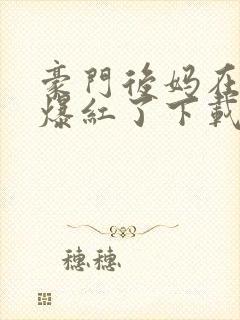 豪門後妈在
爆紅了下載
穗穗